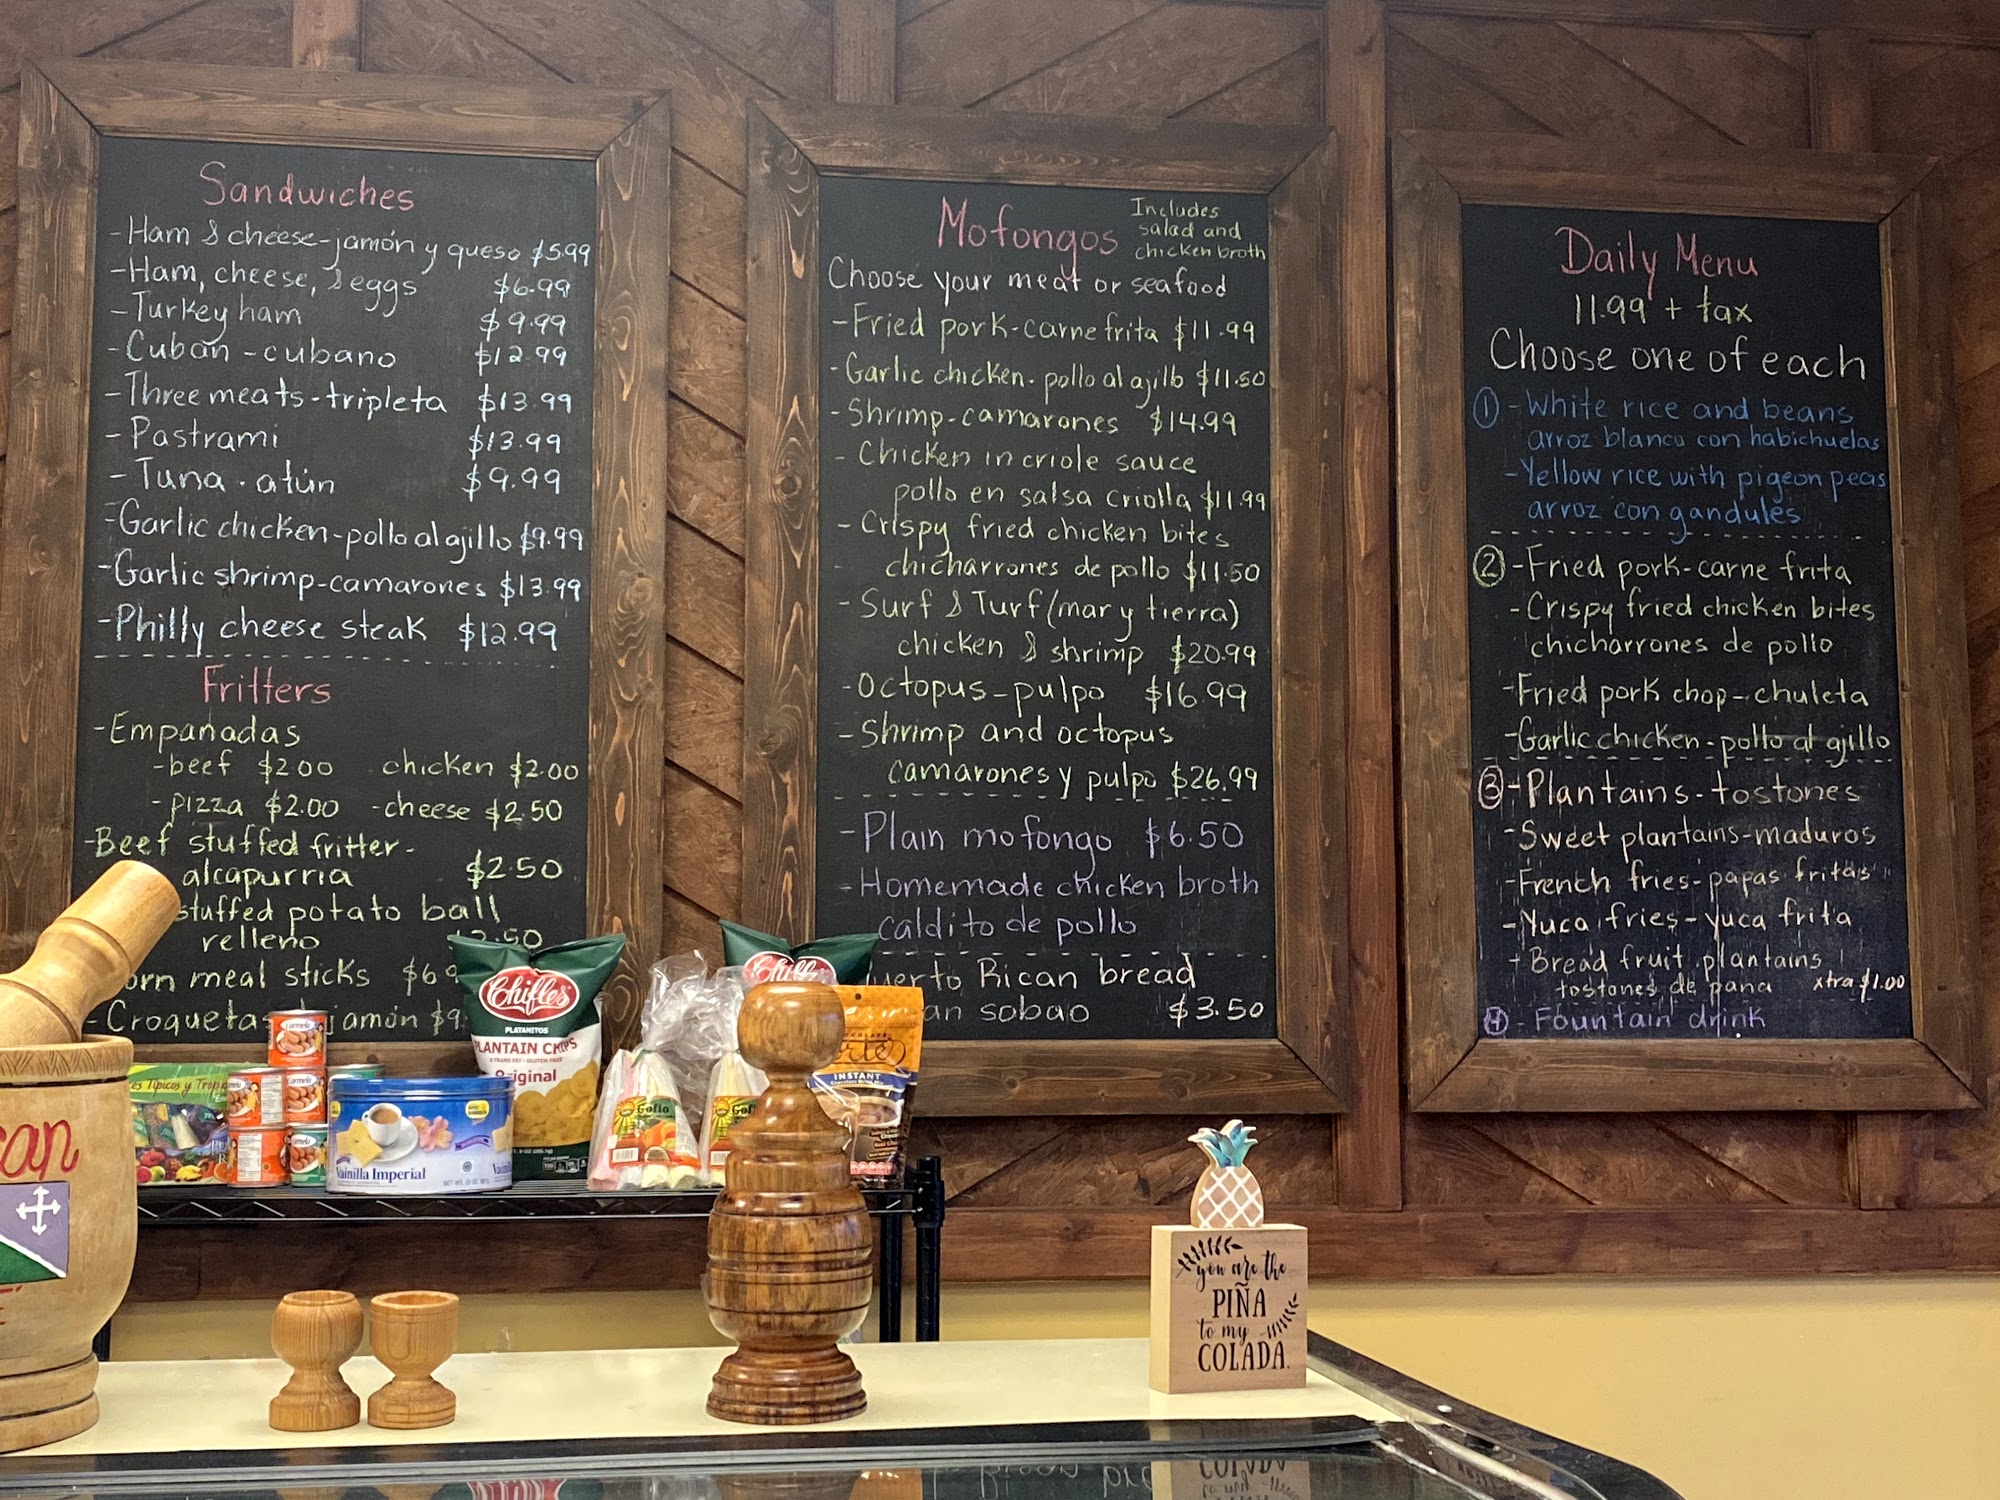 Sandwiches
-Ham & cheese-jamón y queso $5.99
-Ham, cheese, & eggs $6.99
-Turkey ham $9.99
-Cuban-cubano $12.99
-Three meats-tripleta $13.99
-Pastrami $13.99
-Tuna-atún $9.99
-Garlic chicken-pollo al ajillo $9.99
-Garlic shrimp-camarones $13.99
-Philly cheese steak $12.99
Fritters
-Empanadas
-beef $2.00 -chicken $2.00
-pizza $2.00 -cheese $2.50
-Beef stuffed fritter-
alcapurria $2.50
stuffed potato ball
relleno
corn meal sticks
-Croquetas jamón
Mofongos
Includes
salad and
chicken broth
Choose your meat or seafood
-Fried pork-carne frita $11.99
-Garlic chicken-pollo al ajillo $11.50
-Shrimp-camarones $14.99
-Chicken in criole sauce
pollo en salsa criolla $11.99
-Crispy fried chicken bites
chicharrones de pollo $11.50
-Surf & Turf (mar y tierra)
chicken & shrimp $20.99
-Octopus-pulpo $16.99
-Shrimp and octopus
camarones y pulpo $26.99
-Plain mofongo $6.50
-Homemade chicken broth
caldito de pollo
Puerto Rican bread
pan sobao $3.50
Daily Menu
11.99 + tax
Choose one of each
① -White rice and beans
arroz blanco con habichuelas
-Yellow rice with pigeon peas
arroz con gandules
② -Fried pork-carne frita
-Crispy fried chicken bites
chicharrones de pollo
-Fried pork chop-chuleta
-Garlic chicken-pollo al ajillo
③ -Plantains-tostones
-Sweet plantains-maduros
-French fries-papas fritas
-Yuca fries-yuca frita
-Bread fruit plantains
tostones de pana xtra $1.00
④ -Fountain drink
Chifles
PLATANITOS
PLANTAIN CHIPS
Original
Chifles
Carmela
Carmela
Carmela
Típicos y
Vainilla Imperial
Gofio
INSTANT
you are the
PIÑA
to my
COLADA.